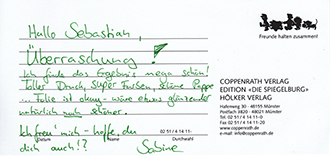 Hallo Sebastian,
Überraschung!
Ich finde das Ergebnis mega schön!
Toller Druck, super Farben, schöne Pappe
... Folie ist okay – wäre etwas glänzender
natürlich noch schöner.
Ich freu' mich – hoffe, du
dich auch!?
Sabine
Datum
Name
Durchwahl
02 51 / 4 14 11-
Freunde halten zusammen!
COPPENRATH VERLAG
EDITION «DIE SPIEGELBURG»
HÖLKER VERLAG
Hafenweg 30 · 48155 Münster
Postfach 3820 · 48021 Münster
Tel. 02 51 / 4 14 11-0
Fax 02 51 / 4 14 11-20
www.coppenrath.de
e-Mail: info@coppenrath.de